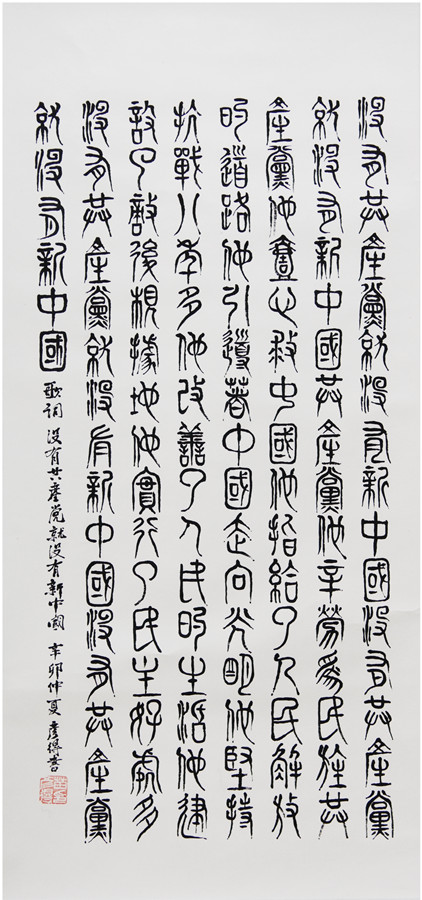 没有共產黨就没有新中國没有共產黨
就没有新中國共產黨他辛勞為民族共
產黨他壹心救中國他指給了人民解放
的道路他引導著中國走向光明他堅持
抗戰八年多他改善了人民的生活他建
設了敵後根據地他實行了民主好處多
没有共產黨就没有新中國没有共產黨
就没有新中國
歌詞 没有共產党就没有新中國 辛卯仲夏 彦得書